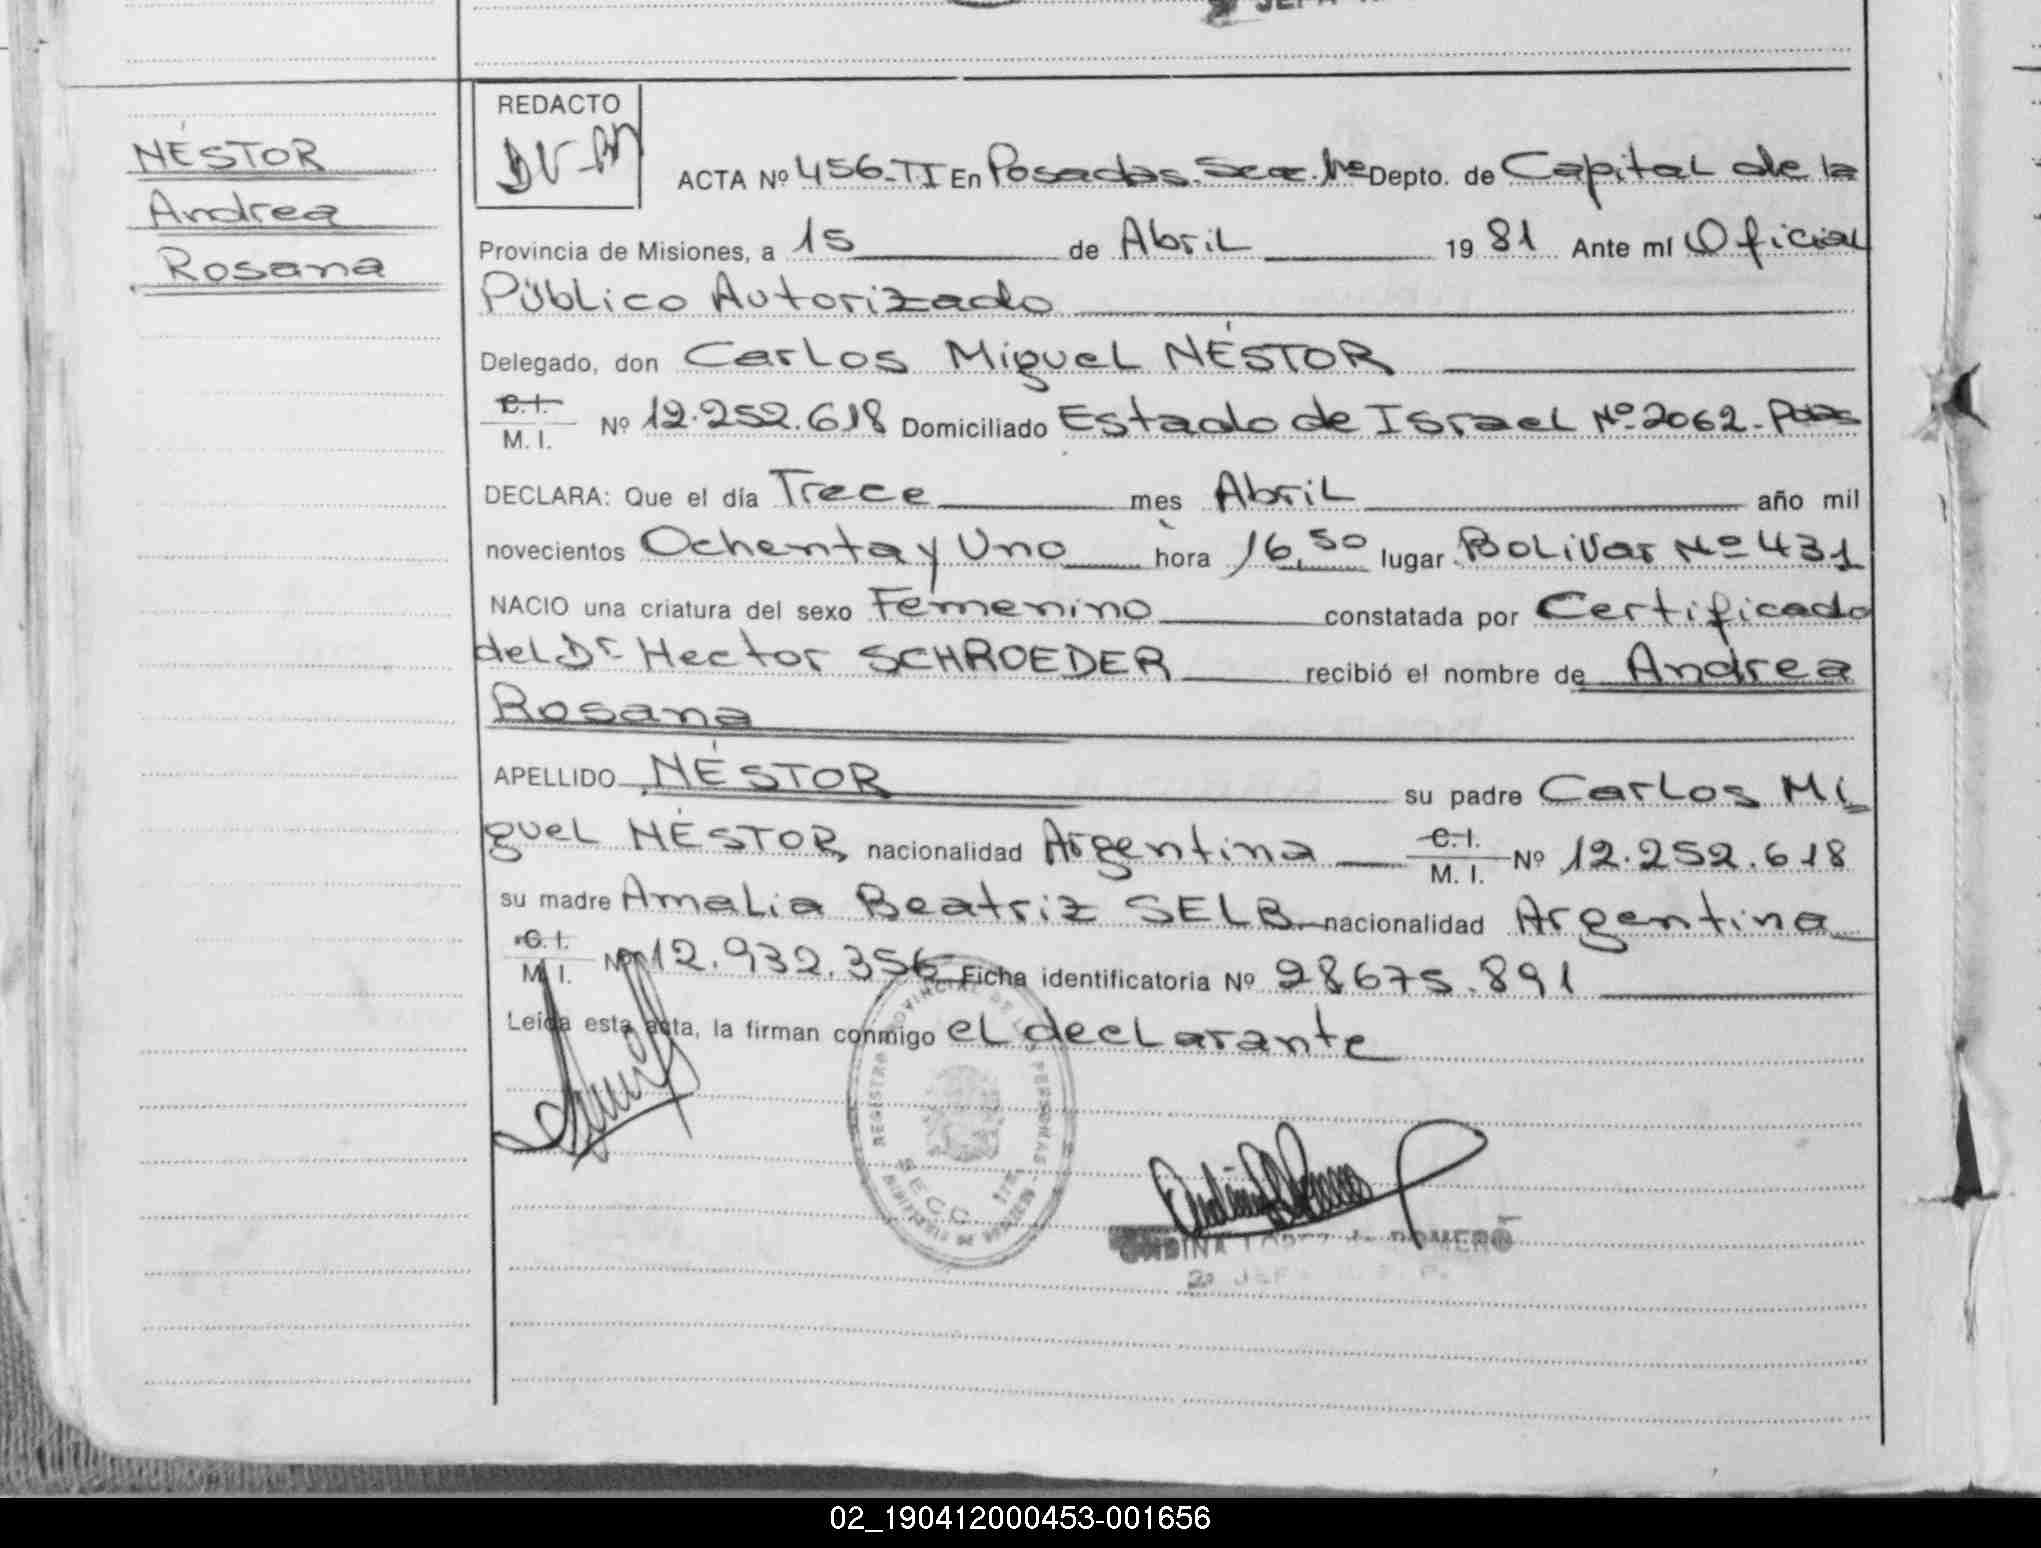 NÉSTOR
Andrea
Rosana
REDACTO
ACTA Nº 456-TI En Posadas. Secc. 1ª Depto. de Capital de la
Provincia de Misiones, a 15 de Abril 1981 Ante mí Oficial
Público Autorizado
Delegado, don Carlos Miguel NÉSTOR
C.I.
M. I. Nº 12.252.618 Domiciliado Estado de Israel Nº 2062-Pdas
DECLARA: Que el día Trece mes Abril año mil
novecientos Ochenta y Uno hora 16,50 lugar Bolivar Nº 431
NACIO una criatura del sexo Femenino constatada por Certificado
del Dr Hector SCHROEDER recibió el nombre de Andrea
Rosana
APELLIDO NÉSTOR su padre Carlos Mi
guel NÉSTOR nacionalidad Argentina C.I. M. I. Nº 12.252.618
su madre Amalia Beatriz SELB nacionalidad Argentina
C.I.
M. I. Nº 12.932.356 Ficha identificatoria Nº 28675.891
Leida esta acta, la firman conmigo el declarante
REGISTRO PROVINCIAL DE LAS PERSONAS
SECC. 1ra
LOPEZ de ROMERO
02_190412000453-001656